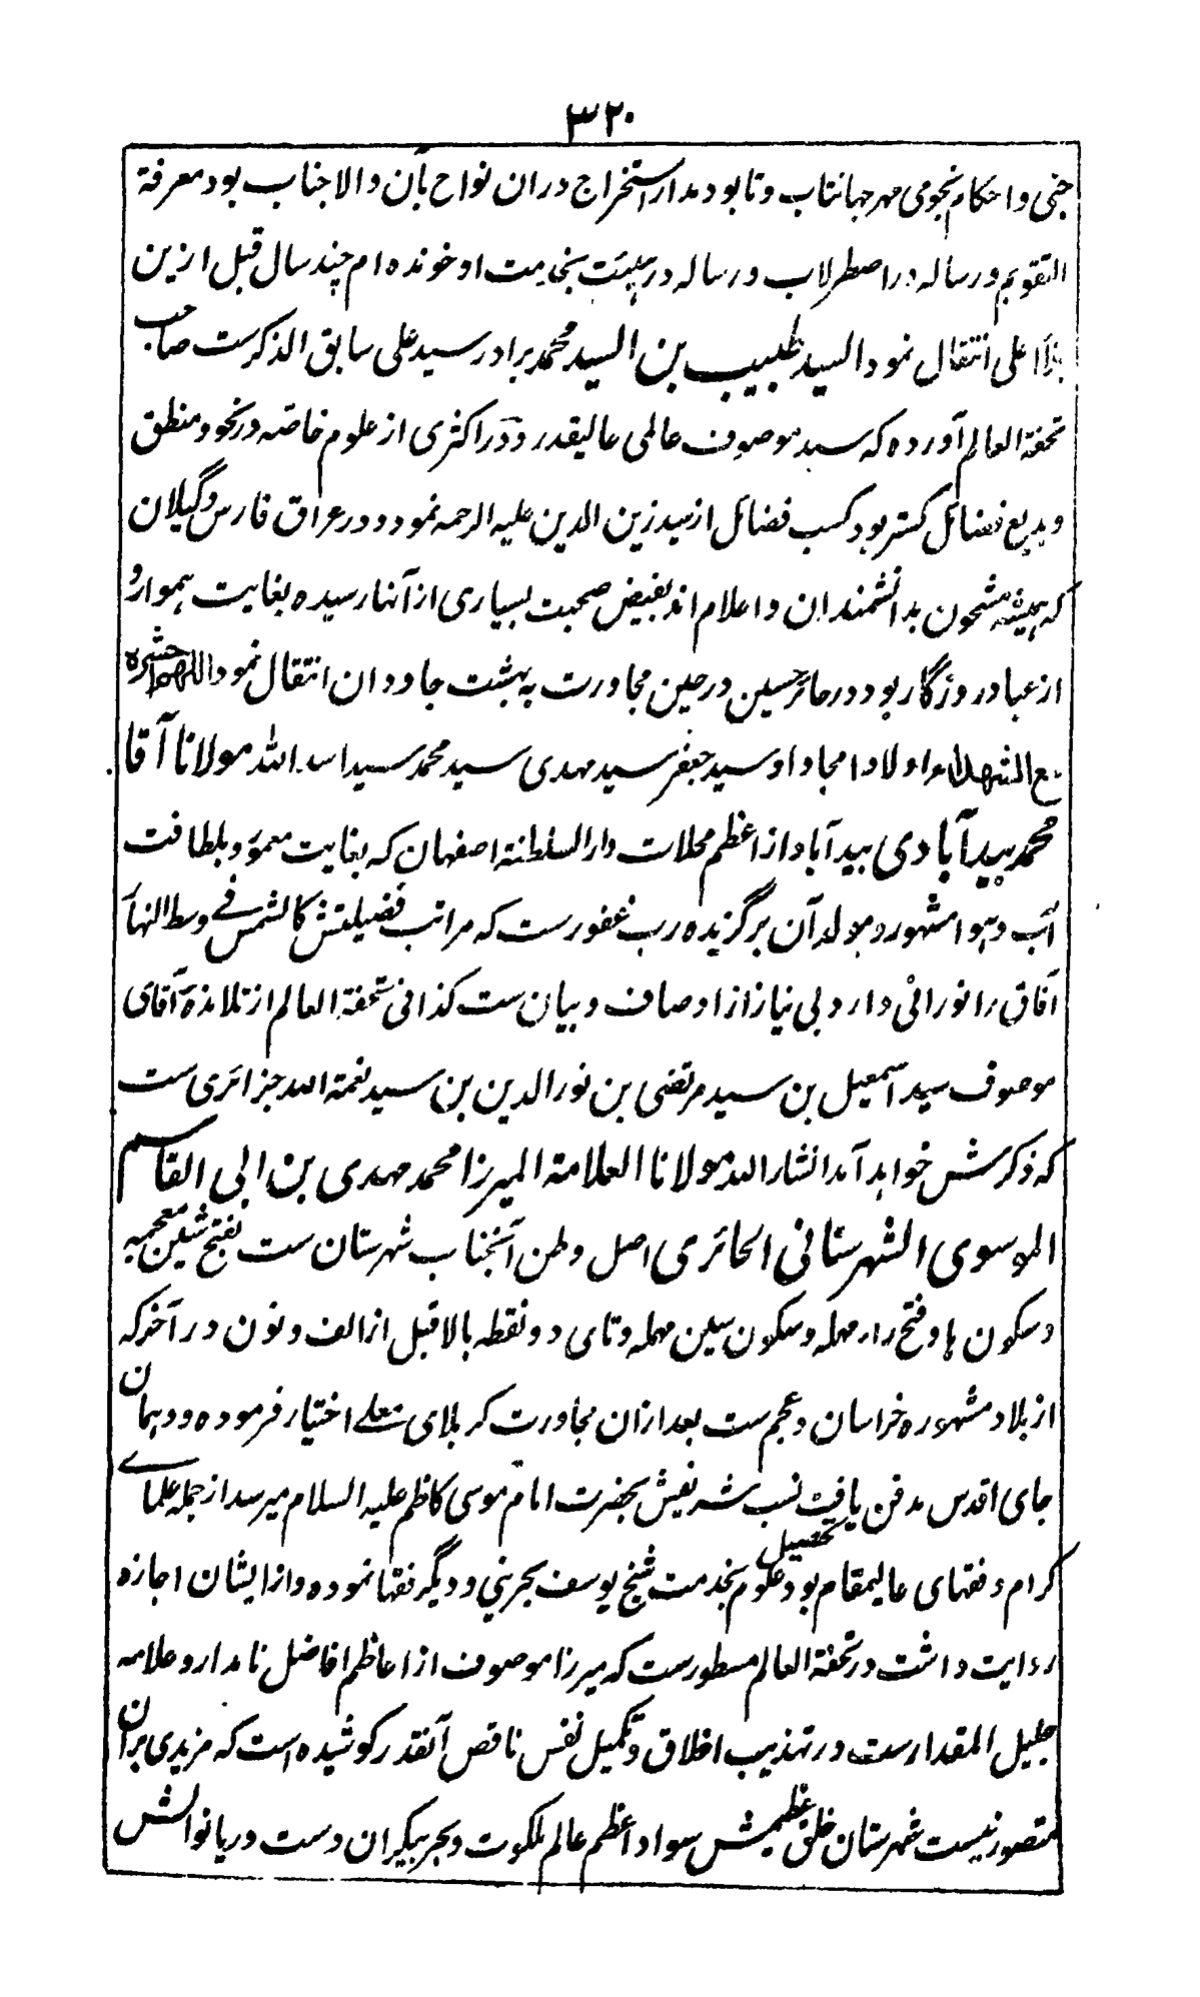 ۳۲۰
جنبی و احکام نجومی مهر جهانتاب و تا بود مدار استخراج دران نواح بآن والاجناب بود معرفة
التقویم و رساله در اصطرلاب و رساله در هیئت بخدمت او خونده ام چند سال قبل ازین
اعلی انتقال نمود السید طبیب بن السید محمد برادر سید علی سابق الذکرست صاحب
تحفة العالم آورده که سید موصوف عالمی عالیقدر و در اکثری از علوم خاصه در نحو و منطق
و بدیع فضائل گستر بود کسب فضائل از سید زین الدین علیه الرحمه نموده و در عراق فارس و گیلان
که همیشه مشحون بدانشمندان و اعلام اند بفیض صحبت بسیاری از آنها رسیده بغایت هموار و
از عباد روزگار بود در حائر حسین در حین مجاورت به بهشت جاودان انتقال نمود اللهم احشره
مع الشهداء و اولاد امجاد او سید جعفر سید مهدی سید محمد سید اسد الله مولانا آقا
محمد بیدآبادی بیدآباد از اعظم محلات دار السلطنة اصفهان که بغایت معمور و بلطافت
آب و هوا مشهور و مولد آن برگزیده رب غفورست که مراتب فضیلتش کالشمس فی وسط النهار
آفاق را نورانی دارد بی نیاز از اوصاف و بیان ست کذا فی تحفة العالم از تلامذه آقای
موصوف سید اسمعیل بن سید مرتضی بن نور الدین بن سید نعمة الله جزائری ست
که ذکرش خواهد آمد انشاء الله مولانا العلامة المیرزا محمد مهدی بن ابی القاسم
الموسوی الشهرستانی الحائری اصل وطن آنجناب شهرستان ست بفتح شین معجمه
و سکون ها و فتح راء مهمله و سکون سین مهمله و تای دو نقطه بالا قبل از الف و نون در آخر که
از بلاد مشهوره خراسان و عجم ست بعد ازان مجاورت کربلای معلے اختیار فرموده و در همان
جای اقدس مدفن یافت نسب شریفش بحضرت امام موسی کاظم علیه السلام میرسد از جمله علمائے
کرام و فقهای عالیمقام بود تحصیل علوم بخدمت شیخ یوسف بحرینی و دیگر فقها نموده و از ایشان اجازه
روایت داشت در تحفة العالم مسطورست که میرزا موصوف از اعاظم افاضل نامدار و علامه
جلیل المقدارست در تهذیب اخلاق و تکمیل نفس ناقص آنقدر کوشیده است که مزیدی بران
متصور نیست شهرستان خلق عظیمش سواد اعظم عالم ملکوت و بحر بیکران دست دریا نوالش